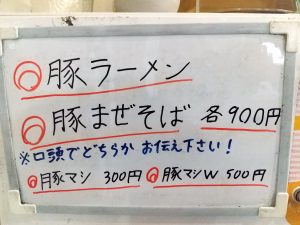 ◎豚ラーメン
◎豚まぜそば 各900円
※口頭でどちらか お伝え下さい!
◎豚マシ 300円 ◎豚マシW 500円